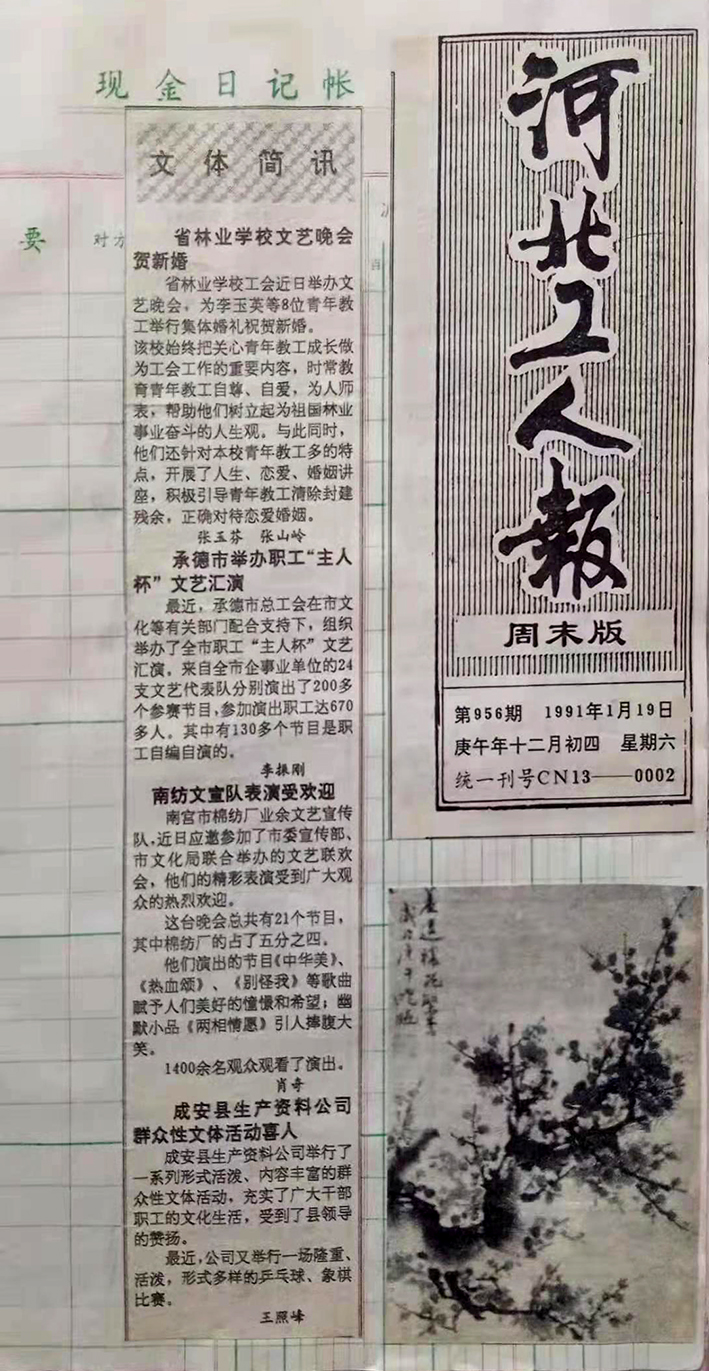 现金日记帐
要
对方
文体简讯
省林业学校文艺晚会
贺新婚
省林业学校工会近日举办文
艺晚会，为李玉英等8位青年教
工举行集体婚礼祝贺新婚。
该校始终把关心青年教工成长做
为工会工作的重要内容，时常教
育青年教工自尊、自爱，为人师
表，帮助他们树立起为祖国林业
事业奋斗的人生观。与此同时，
他们还针对本校青年教工多的特
点，开展了人生、恋爱、婚姻讲
座，积极引导青年教工清除封建
残余，正确对待恋爱婚姻。
张玉芬 张山岭
承德市举办职工“主人
杯”文艺汇演
最近，承德市总工会在市文
化等有关部门配合支持下，组织
举办了全市职工“主人杯”文艺
汇演，来自全市企事业单位的24
支文艺代表队分别演出了200多
个参赛节目，参加演出职工达670
多人。其中有130多个节目是职
工自编自演的。
李振刚
南纺文宣队表演受欢迎
南宫市棉纺厂业余文艺宣传
队，近日应邀参加了市委宣传部、
市文化局联合举办的文艺联欢
会，他们的精彩表演受到广大观
众的热烈欢迎。
这台晚会总共有21个节目，
其中棉纺厂的占了五分之四。
他们演出的节目《中华美》、
《热血颂》、《别怪我》等歌曲
赋予人们美好的憧憬和希望；幽
默小品《两相情愿》引人捧腹大
笑。
1400余名观众观看了演出。
肖奇
成安县生产资料公司
群众性文体活动喜人
成安县生产资料公司举行了
一系列形式活泼、内容丰富的群
众性文体活动，充实了广大干部
职工的文化生活，受到了县领导
的赞扬。
最近，公司又举行一场隆重、
活泼，形式多样的乒乓球、象棋
比赛。
王照峰
河北工人報
周末版
第956期 1991年1月19日
庚午年十二月初四 星期六
统一刊号CN13——0002